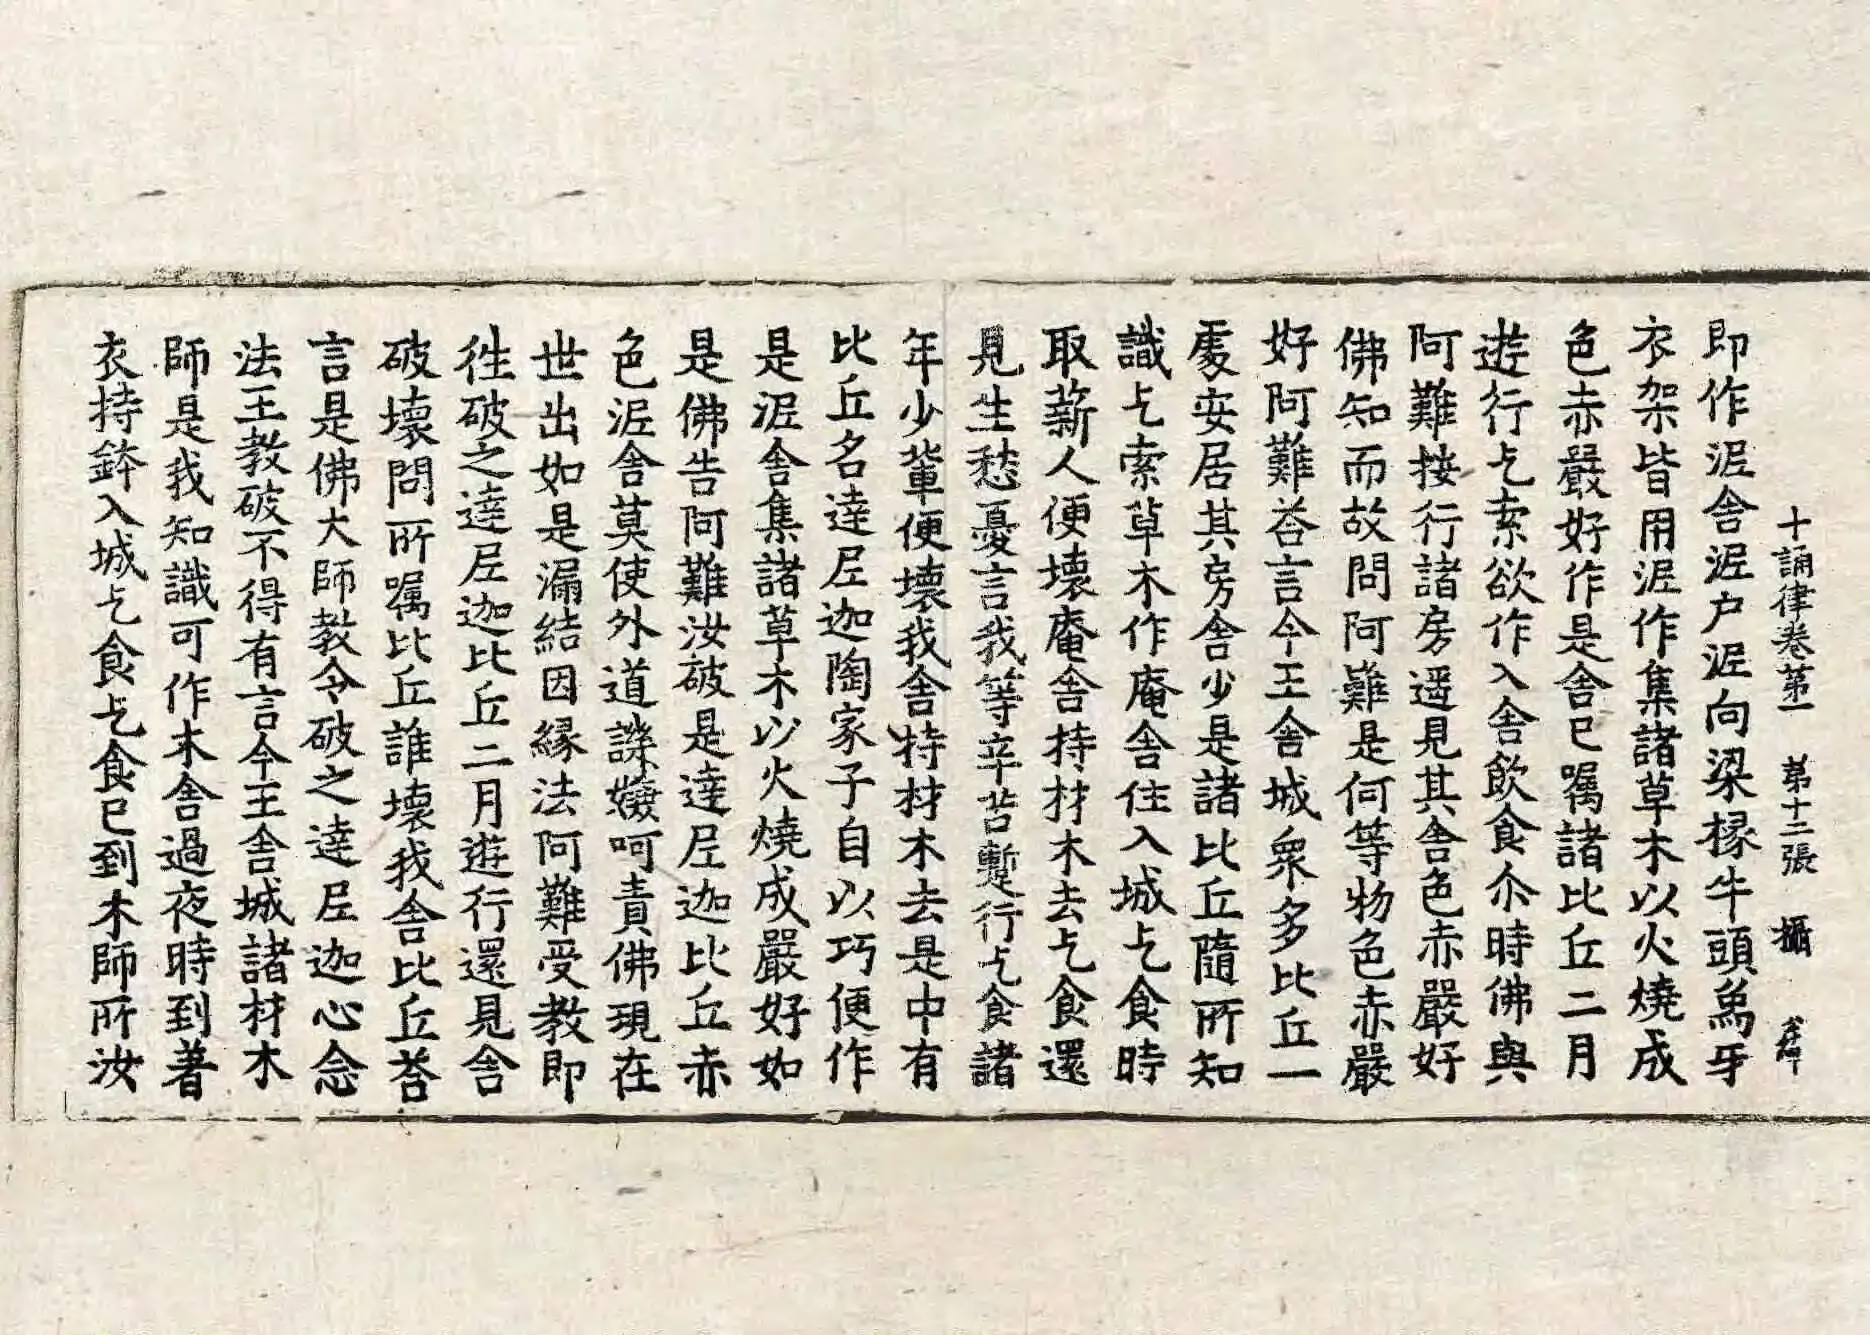 十誦律卷第一 第十二張 攝
即作泥舍泥戶泥向梁椽牛頭鳥牙
衣架皆用泥作集諸草木以火燒成
色赤嚴好作是舍已囑諸比丘二月
遊行乞索欲作入舍飲食尒時佛與
阿難按行諸房遥見其舍色赤嚴好
佛知而故問阿難是何等物色赤嚴
好阿難荅言今王舍城衆多比丘一
處安居其旁舍少是諸比丘隨所知
識乞索草木作庵舍住入城乞食時
取薪人便壞庵舍持材木去乞食還
見生愁憂言我等辛苦蹔行乞食諸
年少輩便壞我舍持材木去是中有
比丘名達尼迦陶家子自以巧便作
是泥舍集諸草木以火燒成嚴好如
是佛告阿難汝破是達尼迦比丘赤
色泥舍莫使外道譏嫌呵責佛現在
世出如是漏結因縁法阿難受教即
徃破之達尼迦比丘二月遊行還見舍
破壞問所囑比丘誰壞我舍比丘荅
言是佛大師教令破之達尼迦心念
法王教破不得有言今王舍城諸材木
師是我知識可作木舍過夜時到著
衣持鉢入城乞食乞食已到木師所汝